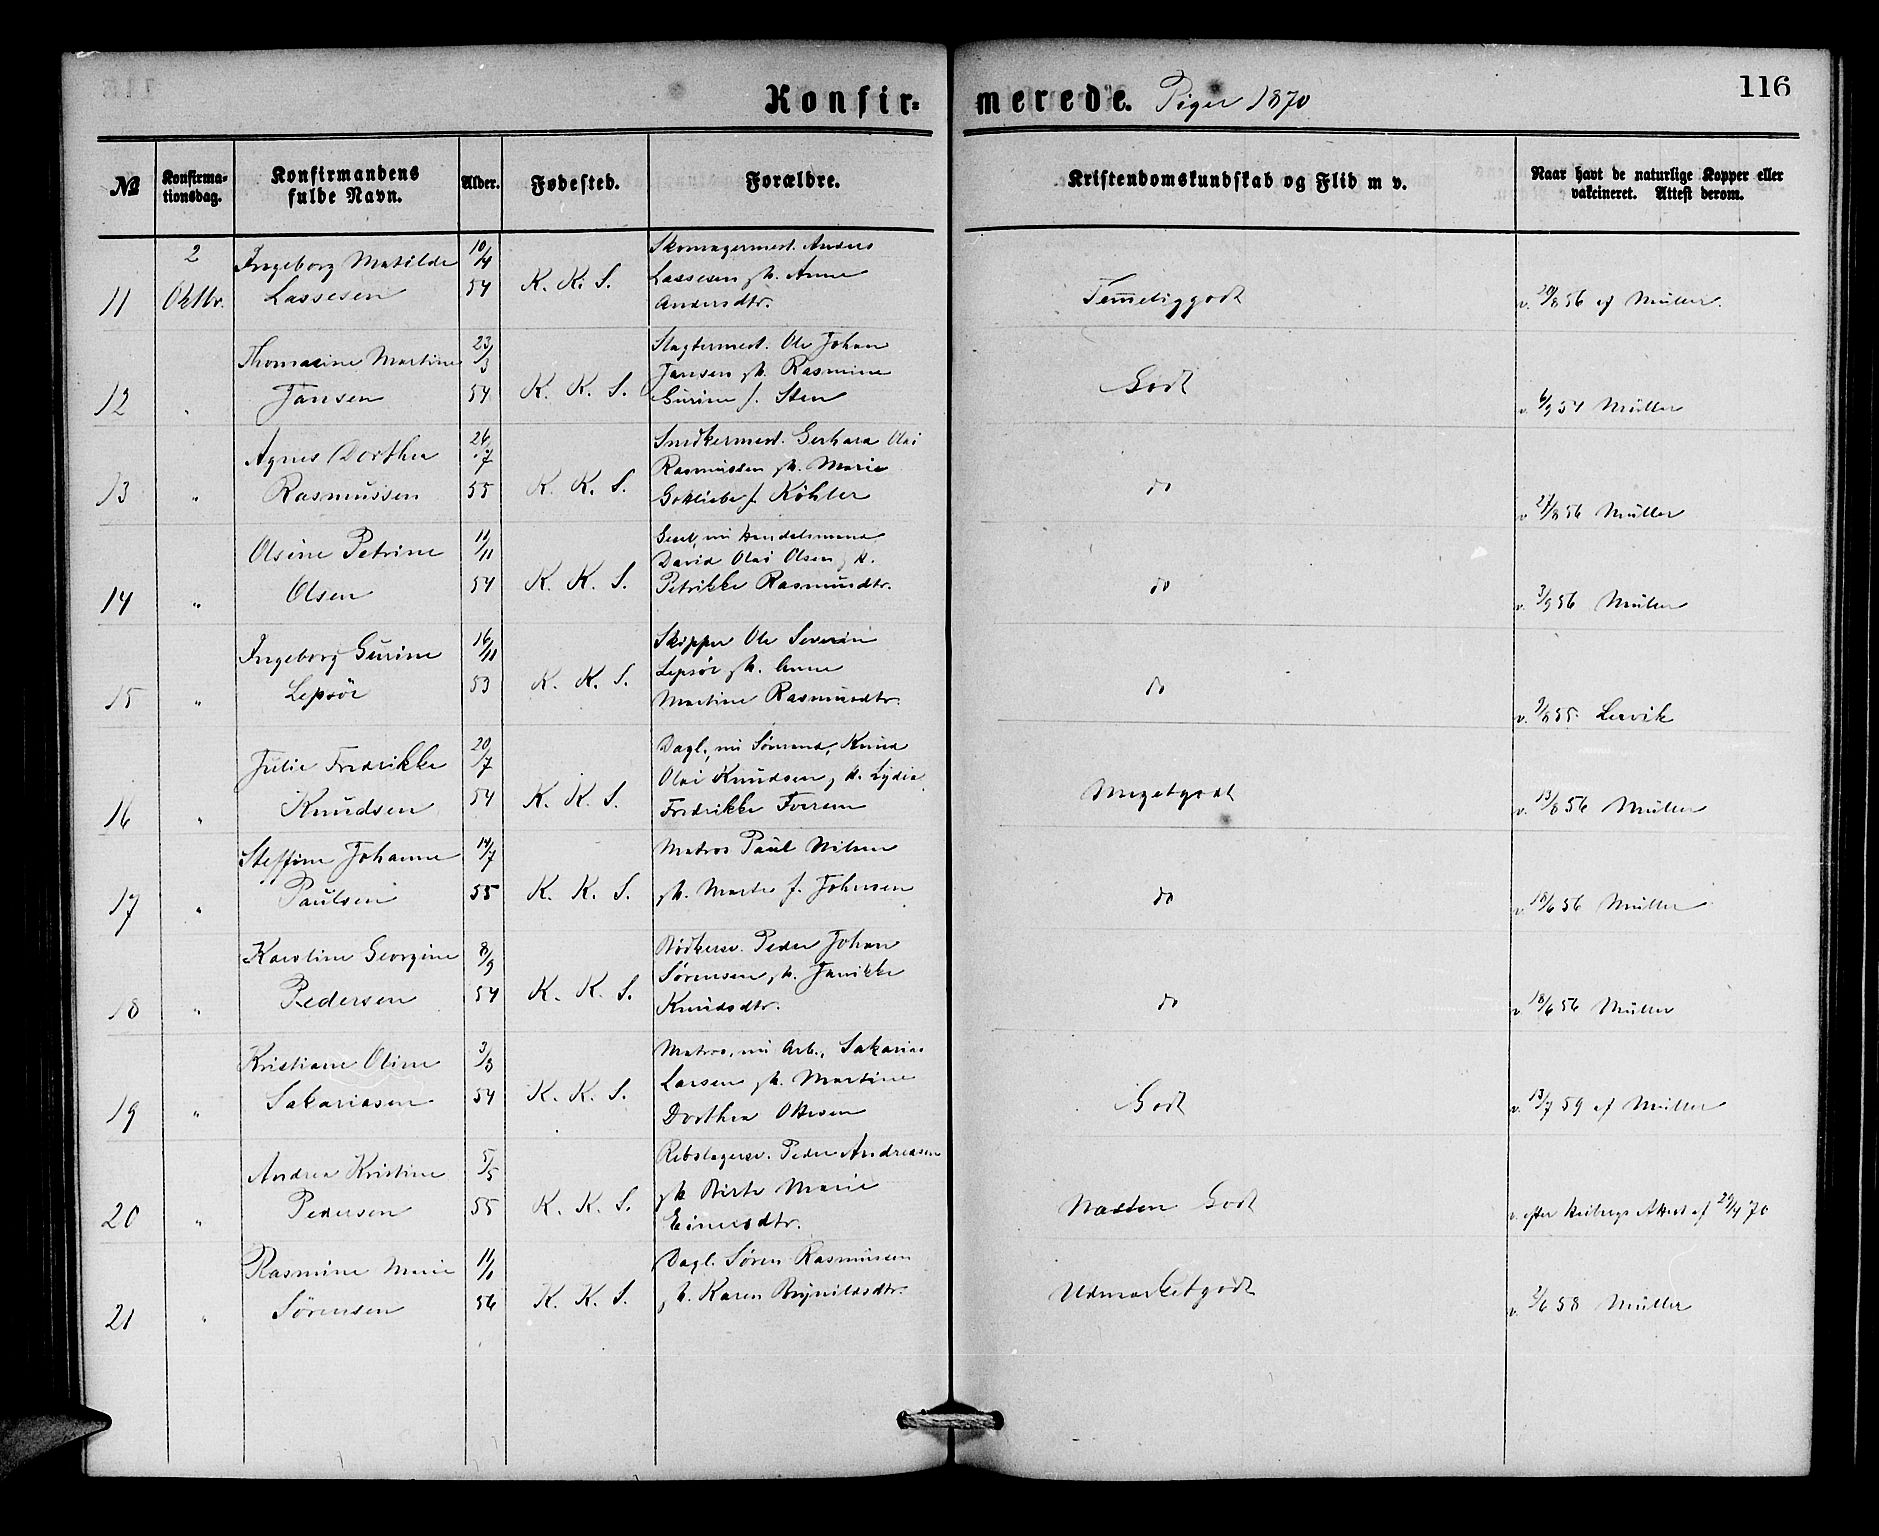 Konfir=
merede. Piger 1870
116
№
Konfirma=
tionsdag.
Konfirmandens
fulde Navn.
Alder.
Fødested.
Forældre.
Kristendomskundskab og Flid m v.
Naar havt de naturlige Kopper eller
vakcineret. Attest derom.
11 2 Oktbr. Ingeborg Matilde Lassesen 10/4 54 K. K. S.
Skomagermest. Anders
Lassesen, h. Anne
Andersdtr.
Temeliggodt
v. 20/8 56 af Müller.
12 " Thomasine Martine Jansen 23/3 54 K. K. S.
Slagtermest. Ole Johan
Jansen, h. Rasmine
Gurine f. Sten
Godt
v. 6/9 54 Müller
13 " Agnes Dorthea Rasmussen 26/7 55 K. K. S.
Snedkermest. Gerhard Olai
Rasmussen, h. Marie
Gottliebe f. Köhler
do
v. 21/8 56 Müller
14 " Olsine Petrine Olsen 11/11 54 K. K. S.
nu Handelsmand
David Olai Olsen, h.
Petrikke Rasmusdtr.
do
v. 3/9 56 Müller
15 " Ingeborg Gurine Lepsöe 16/11 53 K. K. S.
Skipper Ole Severin
Lepsöe, h. Anne
Martine Rasmusdtr.
do
v. 9/8 55. Lervik
16 " Julie Fredrikke Knudsen 20/7 54 K. K. S.
Dagl., nu Sømand, Knud
Olai Knudsen, h. Lydia
Fredrikke
Megetgodt
v. 13/8 56 Müller
17 " Steffine Johanne Paulsen 14/7 55 K. K. S.
Matros Paul Nilsen
h. Marte f. Johnsen
do
v. 18/6 56 Müller
18 " Karoline Georgine Pedersen 8/9 54 K. K. S.
Bødkersv. Peder Johan
Sørensen, h. Janikke
Knudsdtr.
do
v. 18/6 56 Müller
19 " Kristiane Oline Sakariasen 3/3 54 K. K. S.
Matros, nu Arb., Sakarias
Larsen, h. Martine
Dorthea Ottesen
Godt
v. 13/7 59 af Müller
20 " Andrea Kristine Pedersen 5/5 55 K. K. S.
Rebslagersv. Peder Andreasen
h. Birte Marie
Einersdtr.
Næsten Godt
v. efter Heibergs Attest af 29/4 70
21 " Rasmine Marie Sørensen 11/1 56 K. K. S.
Dagl. Søren Rasmussen
h. Karen Brynildsdtr.
Udmærketgodt
v. 2/6 58 Müller